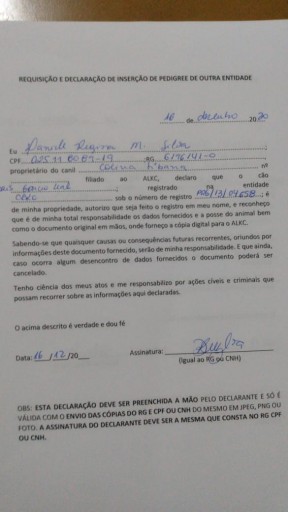 REQUISIÇÃO E DECLARAÇÃO DE INSERÇÃO DE PEDIGREE DE OUTRA ENTIDADE
16 de dezembro 2020
Eu Daniele Regina M. Silva
CPF RG
proprietário do canil nº
filiado ao ALKC, declaro que o cão
registrado na entidade
sob o número de registro é
de minha propriedade, autorizo que seja feito o registro em meu nome, e reconheço
que é de minha total responsabilidade os dados fornecidos e a posse do animal bem
como o documento original em mãos, onde forneço a cópia digital para o ALKC.
Sabendo-se que quaisquer causas ou consequências futuras recorrentes, oriundos por
informações deste documento fornecido, serão de minha responsabilidade. E que ainda,
caso ocorra algum desencontro de dados fornecidos o documento poderá ser
cancelado.
Tenho ciência dos meus atos e me responsabilizo por ações cíveis e criminais que
possam recorrer sobre as informações aqui declaradas.
O acima descrito é verdade e dou fé
Data: 16 /12 /20 Assinatura:
(Igual ao RG ou CNH)
OBS: ESTA DECLARAÇÃO DEVE SER PREENCHIDA A MÃO PELO DECLARANTE E SÓ É
VÁLIDA COM O ENVIO DAS CÓPIAS DO RG E CPF OU CNH DO MESMO EM JPEG, PNG OU
FOTO. A ASSINATURA DO DECLARANTE DEVE SER A MESMA QUE CONSTA NO RG CPF
OU CNH.